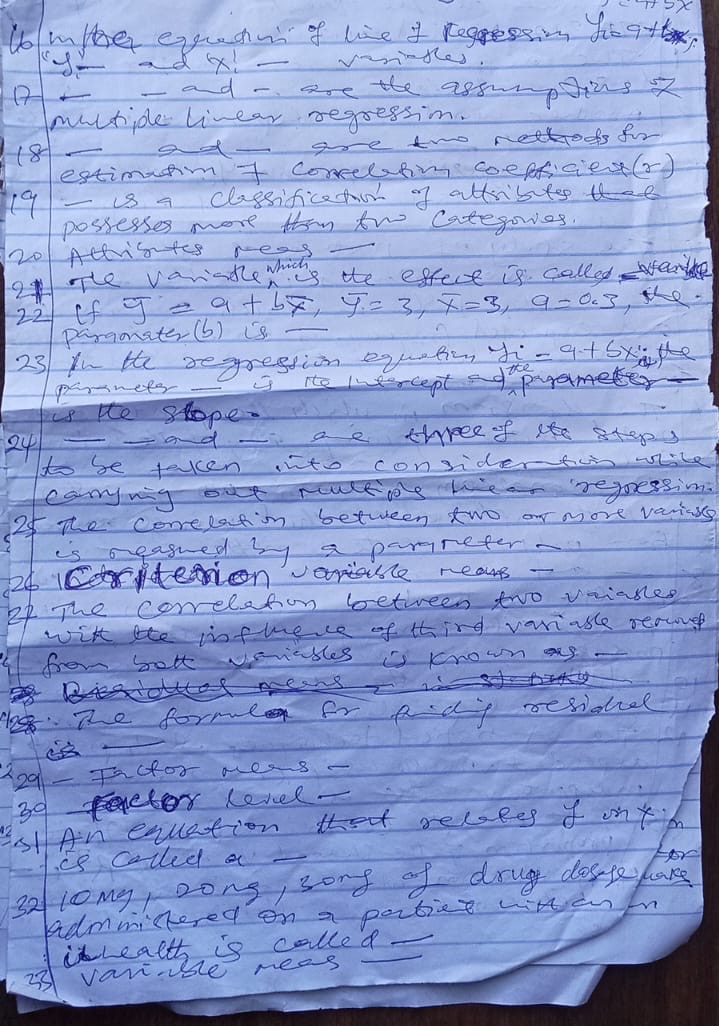 16 In the equation of line of regression Yi = a+bxi,
"Yi — and "Xi — variables.
17 — — and — are the assumptions of
multiple linear regression.
18 — and — are two methods for
estimation of correlation coefficient (r)
19 — is a classification of attributes that
possesses more than two categories.
20 Attributes means —
21 The variable which is the effect is called
22 If ȳ = a + bx̄, ȳ = 3, x̄ = 3, a = 0.3, the
parameter (b) is —
23 In the regression equation Yi = a + bxi the
parameter — is the intercept and the parameter —
is the slope.
24 — — and — are three of the steps
to be taken into consideration while
carrying out multiple linear regression.
25 The correlation between two or more variables
is measured by a parameter —
26 Criterion variable means —
27 The correlation between two variables
with the influence of third variable removed
from both variables is known as —
28. The formula for finding residual
is —
29 — Factor means —
30 Factor level —
31 An equation that relates y on x
is called a —
32 10mg, 20mg, 30mg of drug dosage
administered on a patient with an
health is called —
33 variable means —